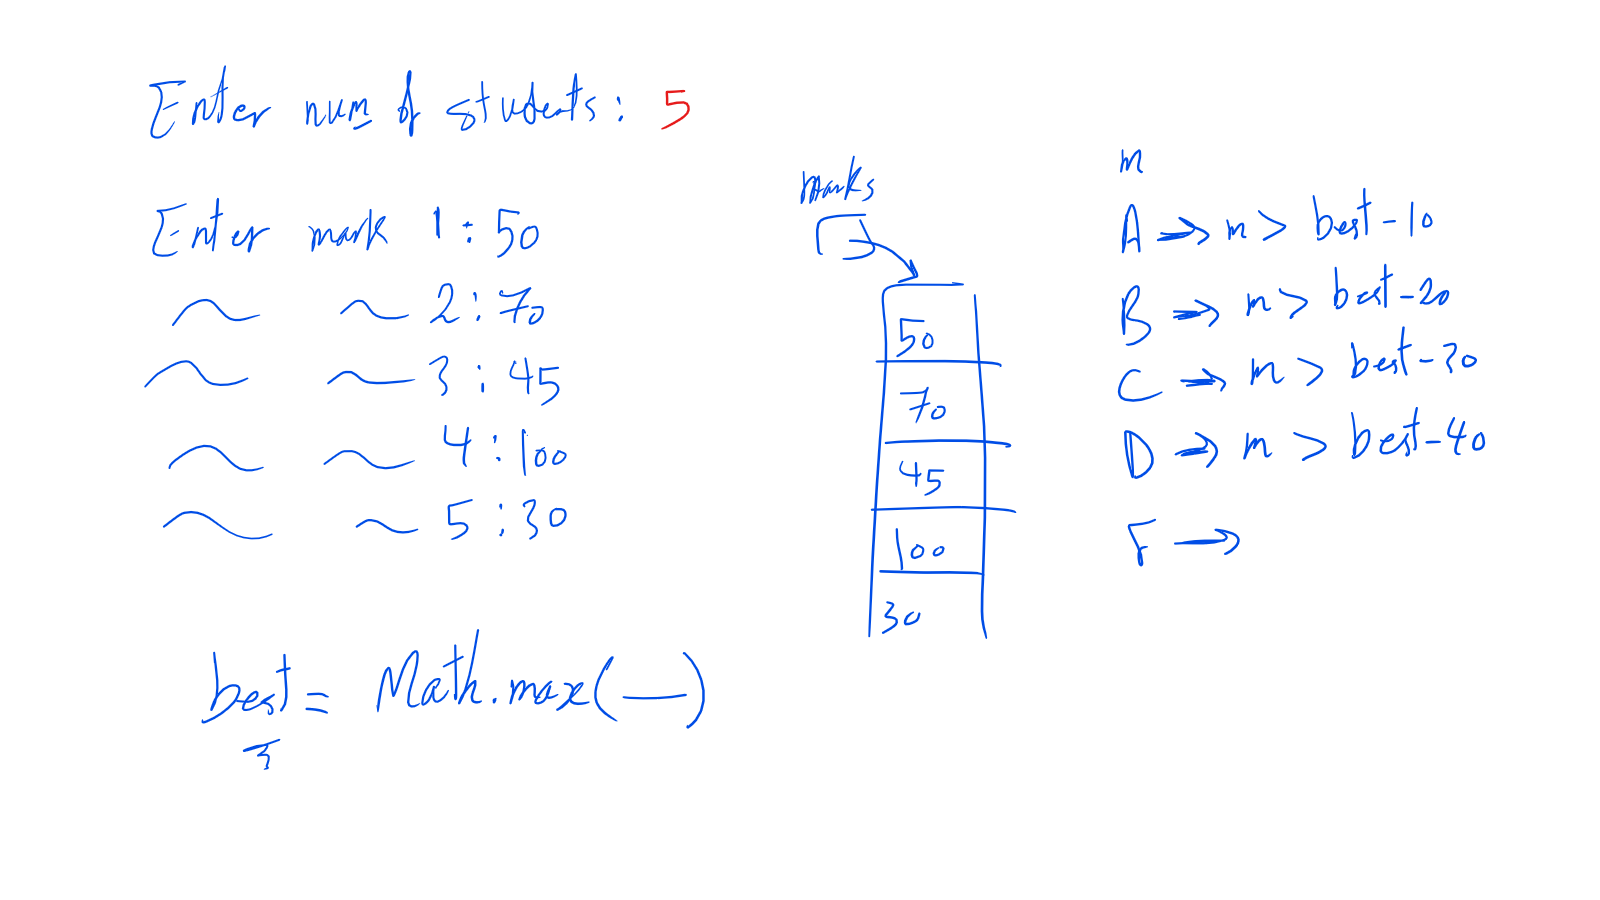 Enter num of students: 5
Enter mark 1: 50
~ ~ 2: 70
~ ~ 3: 45
~ ~ 4: 100
~ ~ 5: 30
best = Math.max(—)
marks
50
70
45
100
30
m
A → m > best-10
B → m > best-20
C → m > best-30
D → m > best-40
F →